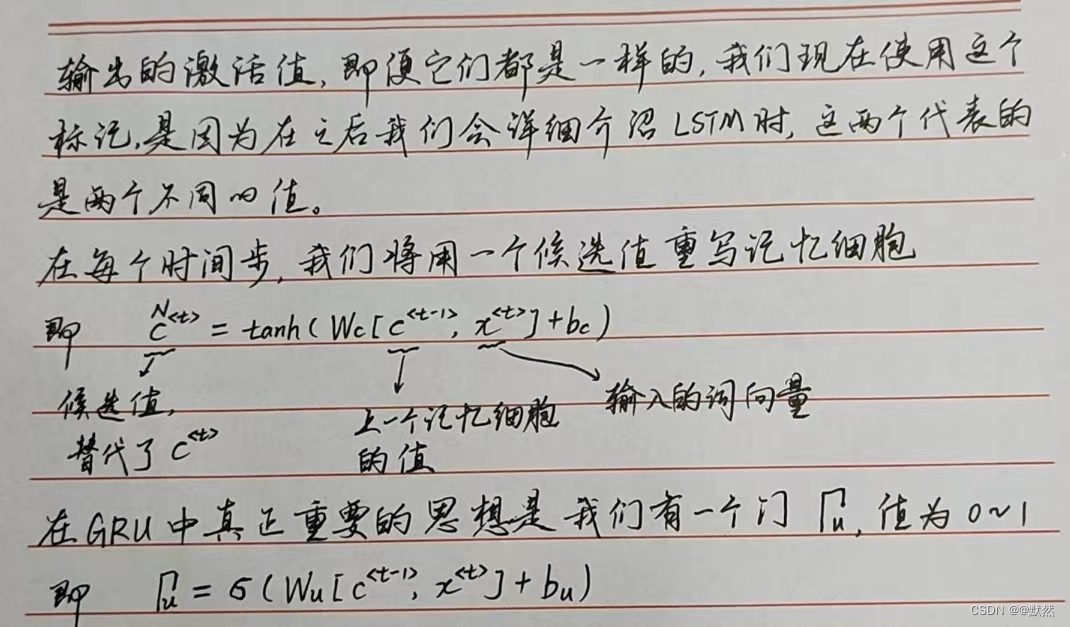 输出的激活值,即便它们都是一样的,我们现在使用这个
标记,是因为在之后我们会详细介绍LSTM时,这两个代表的
是两个不同的值。
在每个时间步,我们将用一个候选值重写记忆细胞
即 c̃<t> = tanh(Wc[c<t-1>, x<t>]+bc)
候选值,
替代了c<t>
上一个记忆细胞
的值
输入的词向量
在GRU中真正重要的思想是我们有一个门Γu,值为0~1
即 Γu = σ(Wu[c<t-1>, x<t>]+bu)
CSDN @@默然